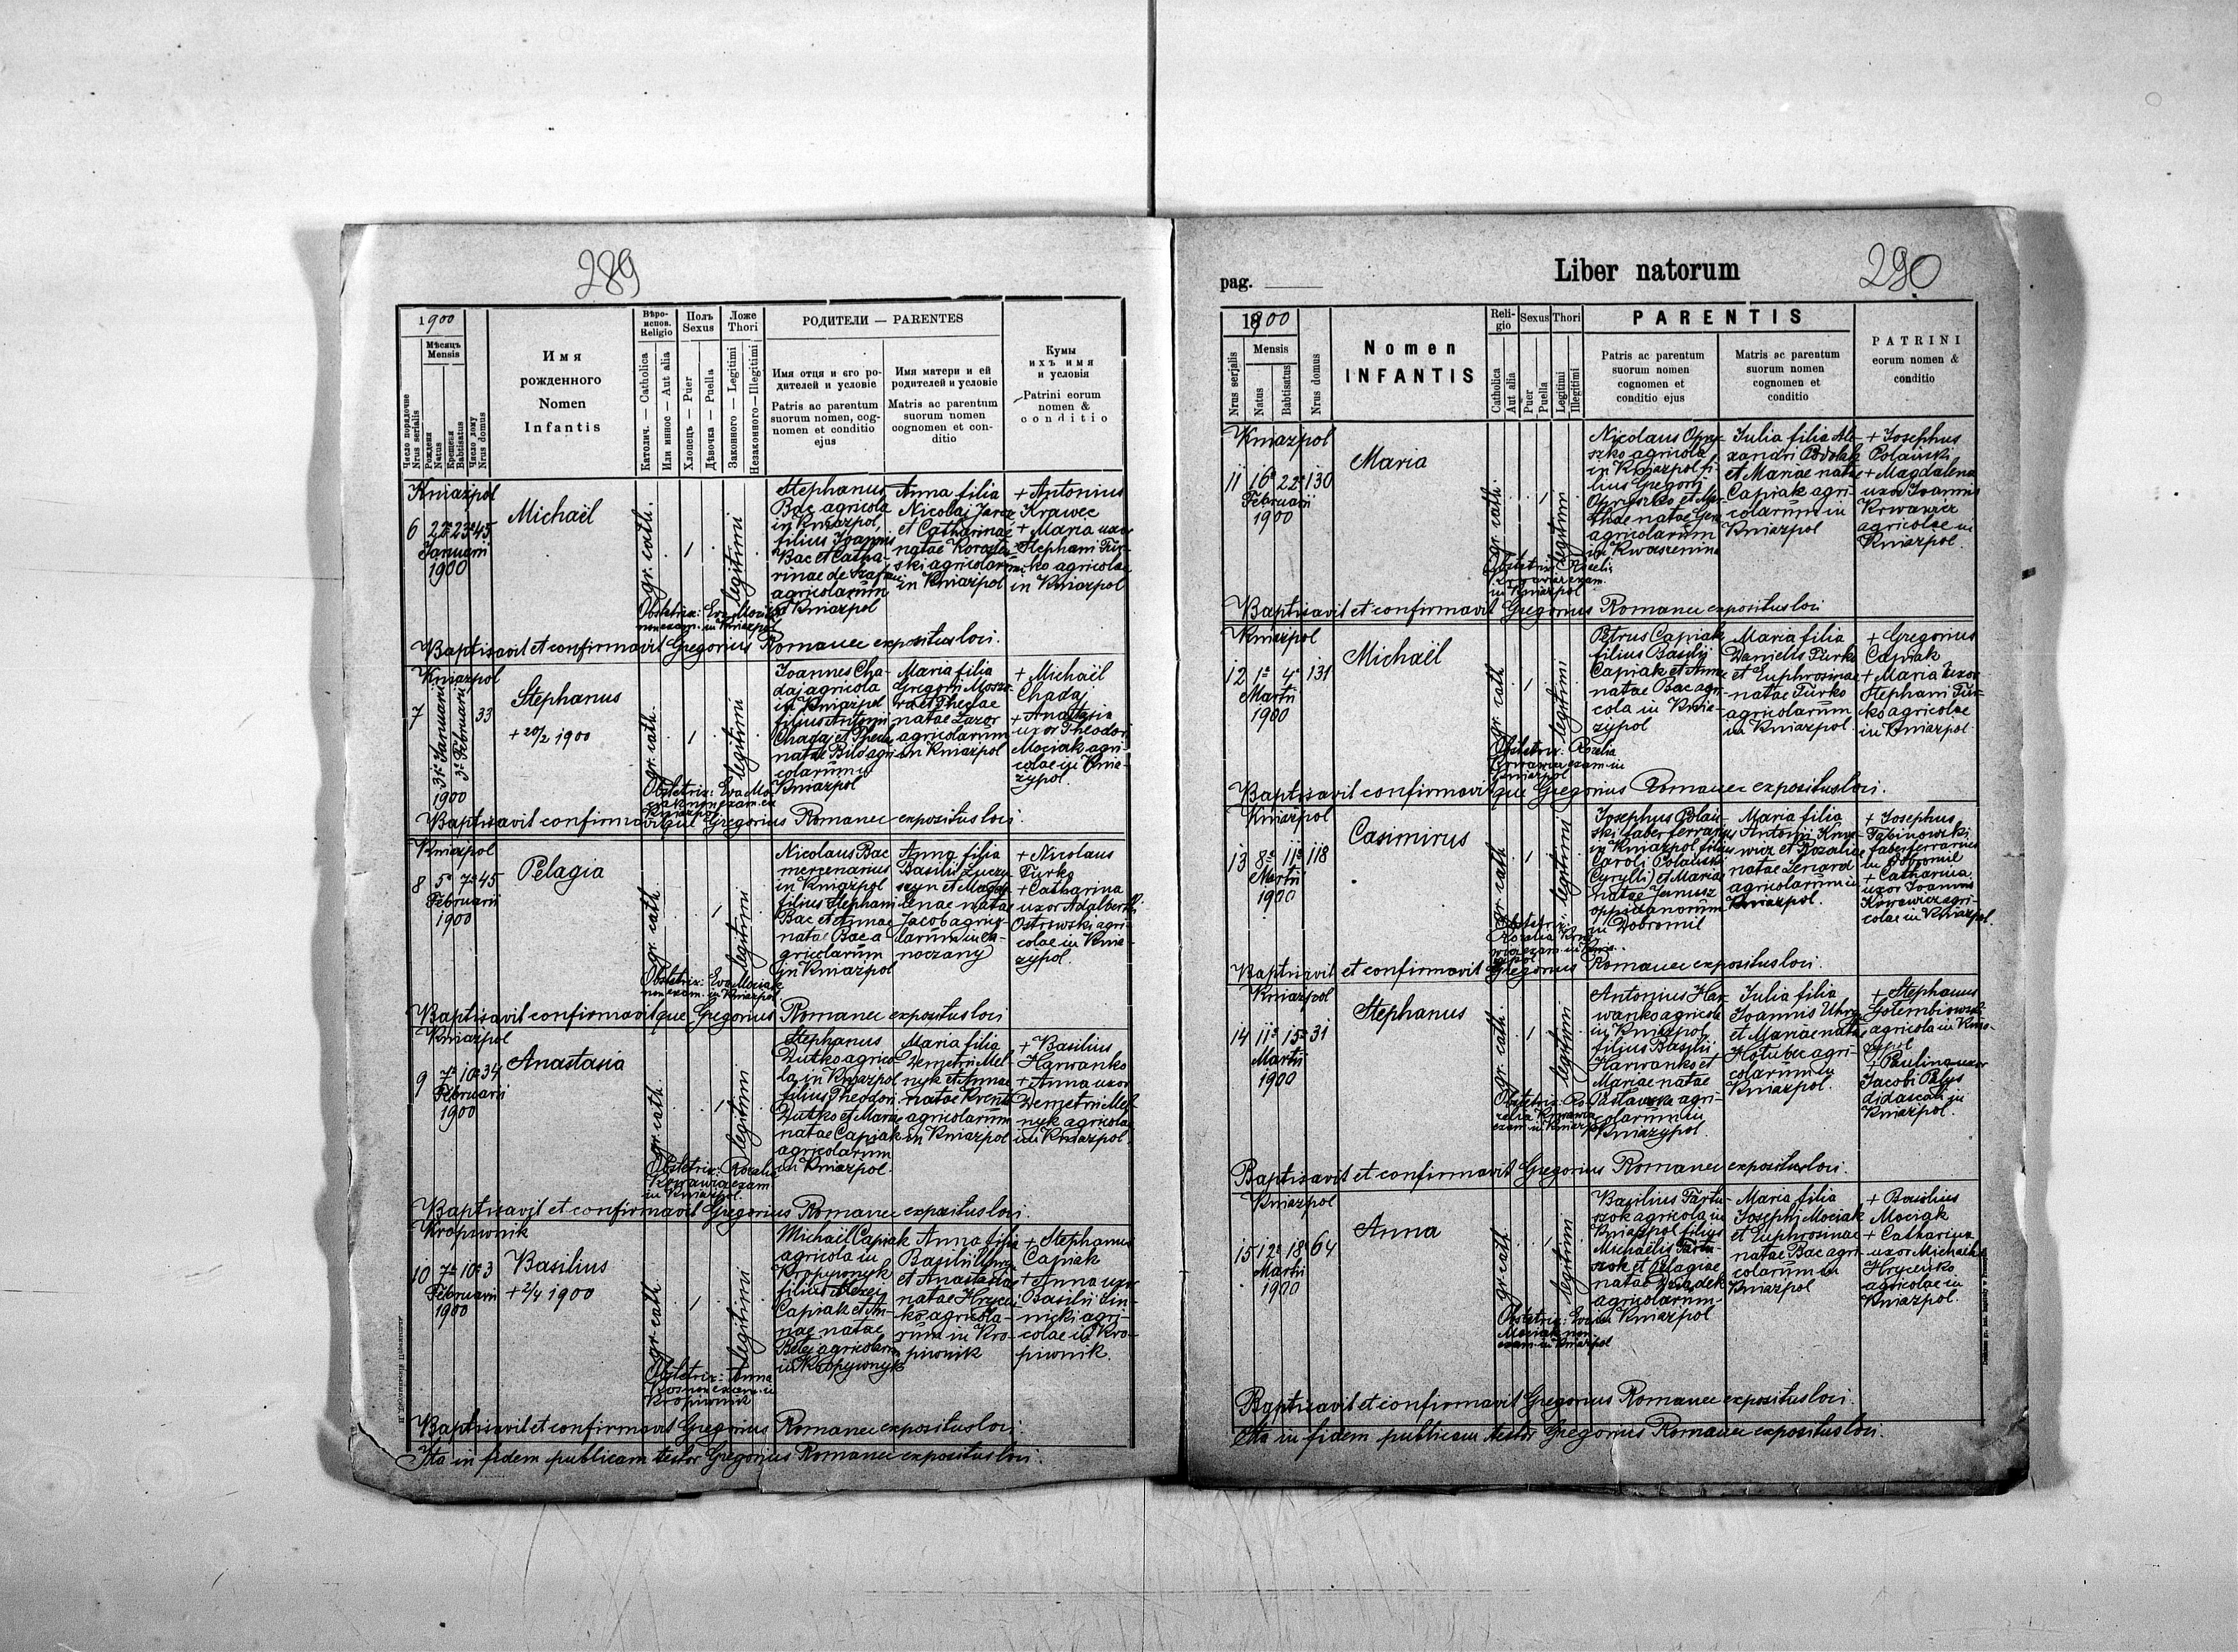 289
1900
Мѣсяць
Mensis
Число порядочне
Nrus serialis
Рожденя
Natus
Крещенія
Babtisatus
Число дому
Nrus domus
Имя
рожденного
Nomen
Infantis
Вѣро-
испов.
Religio
Католич. — Catholica
Или инное — Aut alia
Полъ
Sexus
Хлопецъ — Puer
Дѣвочка — Puella
Ложе
Thori
Законного — Legitimi
Незаконного — Illegitimi
РОДИТЕЛИ — PARENTES
Имя отця и єго ро-
дителей и условіє
Patris ac parentum
suorum nomen, cog-
nomen et conditio
ejus
Имя матери и єй
родителей и условіє
Matris ac parentum
suorum nomen
cognomen et con-
ditio
Кумы
ихъ имя
и условія
Patrini eorum
nomen &
conditio
Kniazpol
6 22 23 45
Januarii
1900
Michaël
gr. cath.
legitimi
Stephanus
Bac agricola
in Kniazpol,
filius Joannis
Bac et Catha-
rinae de
agricolarum
Kniazpol
Anna filia
Nicolai
et Catharinae
natae
agricolarum
in Kniazpol
+ Antonius
Krawec
+ Maria uxor
Stephani Tur-
ko agricolae
in Kniazpol
Obstetrix: Eva Mociak
non exam. in Kniazpol
Baptisavit et confirmavit Gregorius Romanec expositus loci.
Kniazpol
7 31 Januarii 3 Februarii 33
1900
Stephanus
+ 20/2 1900
gr. cath.
legitimi
Joannes Cha-
daj agricola
in Kniazpol
filius Antonii
Chadaj et Theclae
natae Bilo agri-
colarum in
Kniazpol
Maria filia
Gregorii Mosso-
ra et Theclae
natae Lazor
agricolarum
in Kniazpol
+ Michaël
Chadaj
+ Anastasia
uxor Theodori
Mociak agri-
colae in Knia-
żypol.
Obstetrix: Eva Mo-
ciak non exam. in
Kniazpol
Baptisavit confirmavitque Gregorius Romanec expositus loci.
Kniazpol
8 5 7 45
Februarii
1900
Pelagia
gr. cath.
legitimi
Nicolaus Bac
mercenarius
in Kniazpol
filius Stephani
Bac et Annae
natae Bac a-
gricolarum
in Kniazpol
Anna filia
Basilii
et Magda-
lenae natae
Jacob agrico-
larum in
noczany
+ Nicolaus
Turko
+ Catharina
uxor Adalberti
Ostrowski agri-
colae in Knia-
zypol.
Obstetrix: Eva Mociak
non exam. in Kniazpol
Baptisavit confirmavitque Gregorius Romanec expositus loci
Kniazpol
9 7 10 34
Februarii
1900
Anastasia
gr. cath.
legitimi
Stephanus
Dutko agrico-
la in Kniazpol
filius Theodori
Dutko et Mariae
natae Capiak
agricolarum
in Kniazpol
Maria filia
Demetrii Mel-
nyk et Annae
natae
agricolarum
in Kniazpol
+ Basilius
Harwanko
+ Anna uxor
Demetrii Mel-
nyk agricolae
in Kniazpol
Obstetrix: Rozalia
exam.
in Kniazpol.
Baptisavit et confirmavit Gregorius Romanec expositus loci.
Kropiwnik
10 7 10 3
Februarii
1900
Basilius
+ 2/4 1900
gr. cath.
legitimi
Michaël Capiak
agricola in
Kropywnyk
filius Alexei
Capiak et An-
nae natae
agricolarum
in Kropywnyk
Anna filia
Basilii
et Anastasiae
natae Hrycen-
ko agricola-
rum in Kro-
piwnik
+ Stephanus
Capiak
+ Anna uxor
Basilii Sin-
nicki agri-
colae in Kro-
piwnik.
Obstetrix: Anna
non exam. in
Kropiwnik
Baptisavit et confirmavit Gregorius Romanec expositus loci.
Ita in fidem publicam testor Gregorius Romanec expositus loci.
pag.
Liber natorum
290
1900
Nrus serialis
Mensis
Natus
Babtisatus
Nrus domus
Nomen
INFANTIS
Reli-
gio
Catholica
Aut alia
Sexus
Puer
Puella
Thori
Legitimi
Illegitimi
PARENTIS
Patris ac parentum
suorum nomen
cognomen et
conditio ejus
Matris ac parentum
suorum nomen
cognomen et
conditio
PATRINI
eorum nomen &
conditio
Kniazpol
11 16 22 130
Februarii
1900
Maria
gr. cath.
legitimi
Nicolaus Opry-
szko agricola
in Kniazpol fi-
lius Gregorii
Opryszko et
natae
agricolarum
in Kwaszenina
Julia filia Ale-
xandri
et Mariae natae
Capiak agri-
colarum in
Kniazpol
+ Josephus
Polański
+ Magdalena
uxor Joannis
Krwawicz
agricolae in
Kniazpol.
Obstetrix: Rozalia
exam.
in Kniazpol
Baptisavit et confirmavit Gregorius Romanec expositus loci
Kniazpol
12 1 4 131
Martii
1900
Michaël
gr. cath.
legitimi
Petrus Capiak
filius Basilij
Capiak et Annae
natae Bac agri-
cola in Knia-
zypol
Maria filia
Danielis Turko
et Euphrosinae
natae Turko
agricolarum
in Kniazpol.
+ Gregorius
Capiak
+ Maria uxor
Stephani Tur-
ko agricolae
in Kniazpol.
Obstetrix: Rozalia
exam. in
Kniazpol
Baptisavit confirmavitque Gregorius Romanec expositus loci.
Kniazpol
13 8 11 118
Martii
1900
Casimirus
gr. cath.
legitimi
Josephus Polań-
ski faber ferrarius
in Kniazpol filius
Caroli Polański
(Cyrylli) et Mariae
natae Janusz
oppidanorum
in Dobromil
Maria filia
Antonii Krwa-
wicz et Rozaliae
natae Lenard
agricolarum in
Kniazpol.
+ Josephus
Tabinowski
faber ferrarius
in Dobromil
+ Catharina
uxor Joannis
agri-
colae in Kniazpol.
Obstetrix:
Rozalia
Baptisavit et confirmavit Gregorius Romanec expositus loci.
Kniazpol
14 11 15 31
Martii
1900
Stephanus
gr. cath.
legitimi
Antonius Har-
wanko agricola
in Kniazpol
filius Basilii
Harwanko et
Mariae natae
agri-
colarum in
Kniazypol.
Julia filia
Joannis Uhryn
et Mariae natae
Hołubec agri-
colarum in
Kniazpol.
+ Stephanus
Gołembiowski
agricola in Knia-
zypol
+ Paulina uxor
Jacobi
didascali in
Kniazpol.
Obstetrix: Ro-
zalia
exam. in Kniazpol
Baptisavit et confirmavit Gregorius Romanec expositus loci.
Kniazpol
15 12 18 64
Martii
1900
Anna
gr. cath.
legitimi
Basilius Tartu-
szok agricola in
Kniazpol filius
Michaëlis Tartu-
szok et Pelagiae
natae Dziadek
agricolarum
in Kniazpol
Maria filia
Josephi Mociak
et Euphrosinae
natae Bac agri-
colarum in
Kniazpol
+ Basilius
Mociak
+ Catharina
uxor Michaëlis
Hrycenko
agricolae in
Kniazpol.
Obstetrix: Eva
Mociak non
exam. in Kniazpol
Baptisavit et confirmavit Gregorius Romanec expositus loci.
Ita in fidem publicam testor Gregorius Romanec expositus loci.